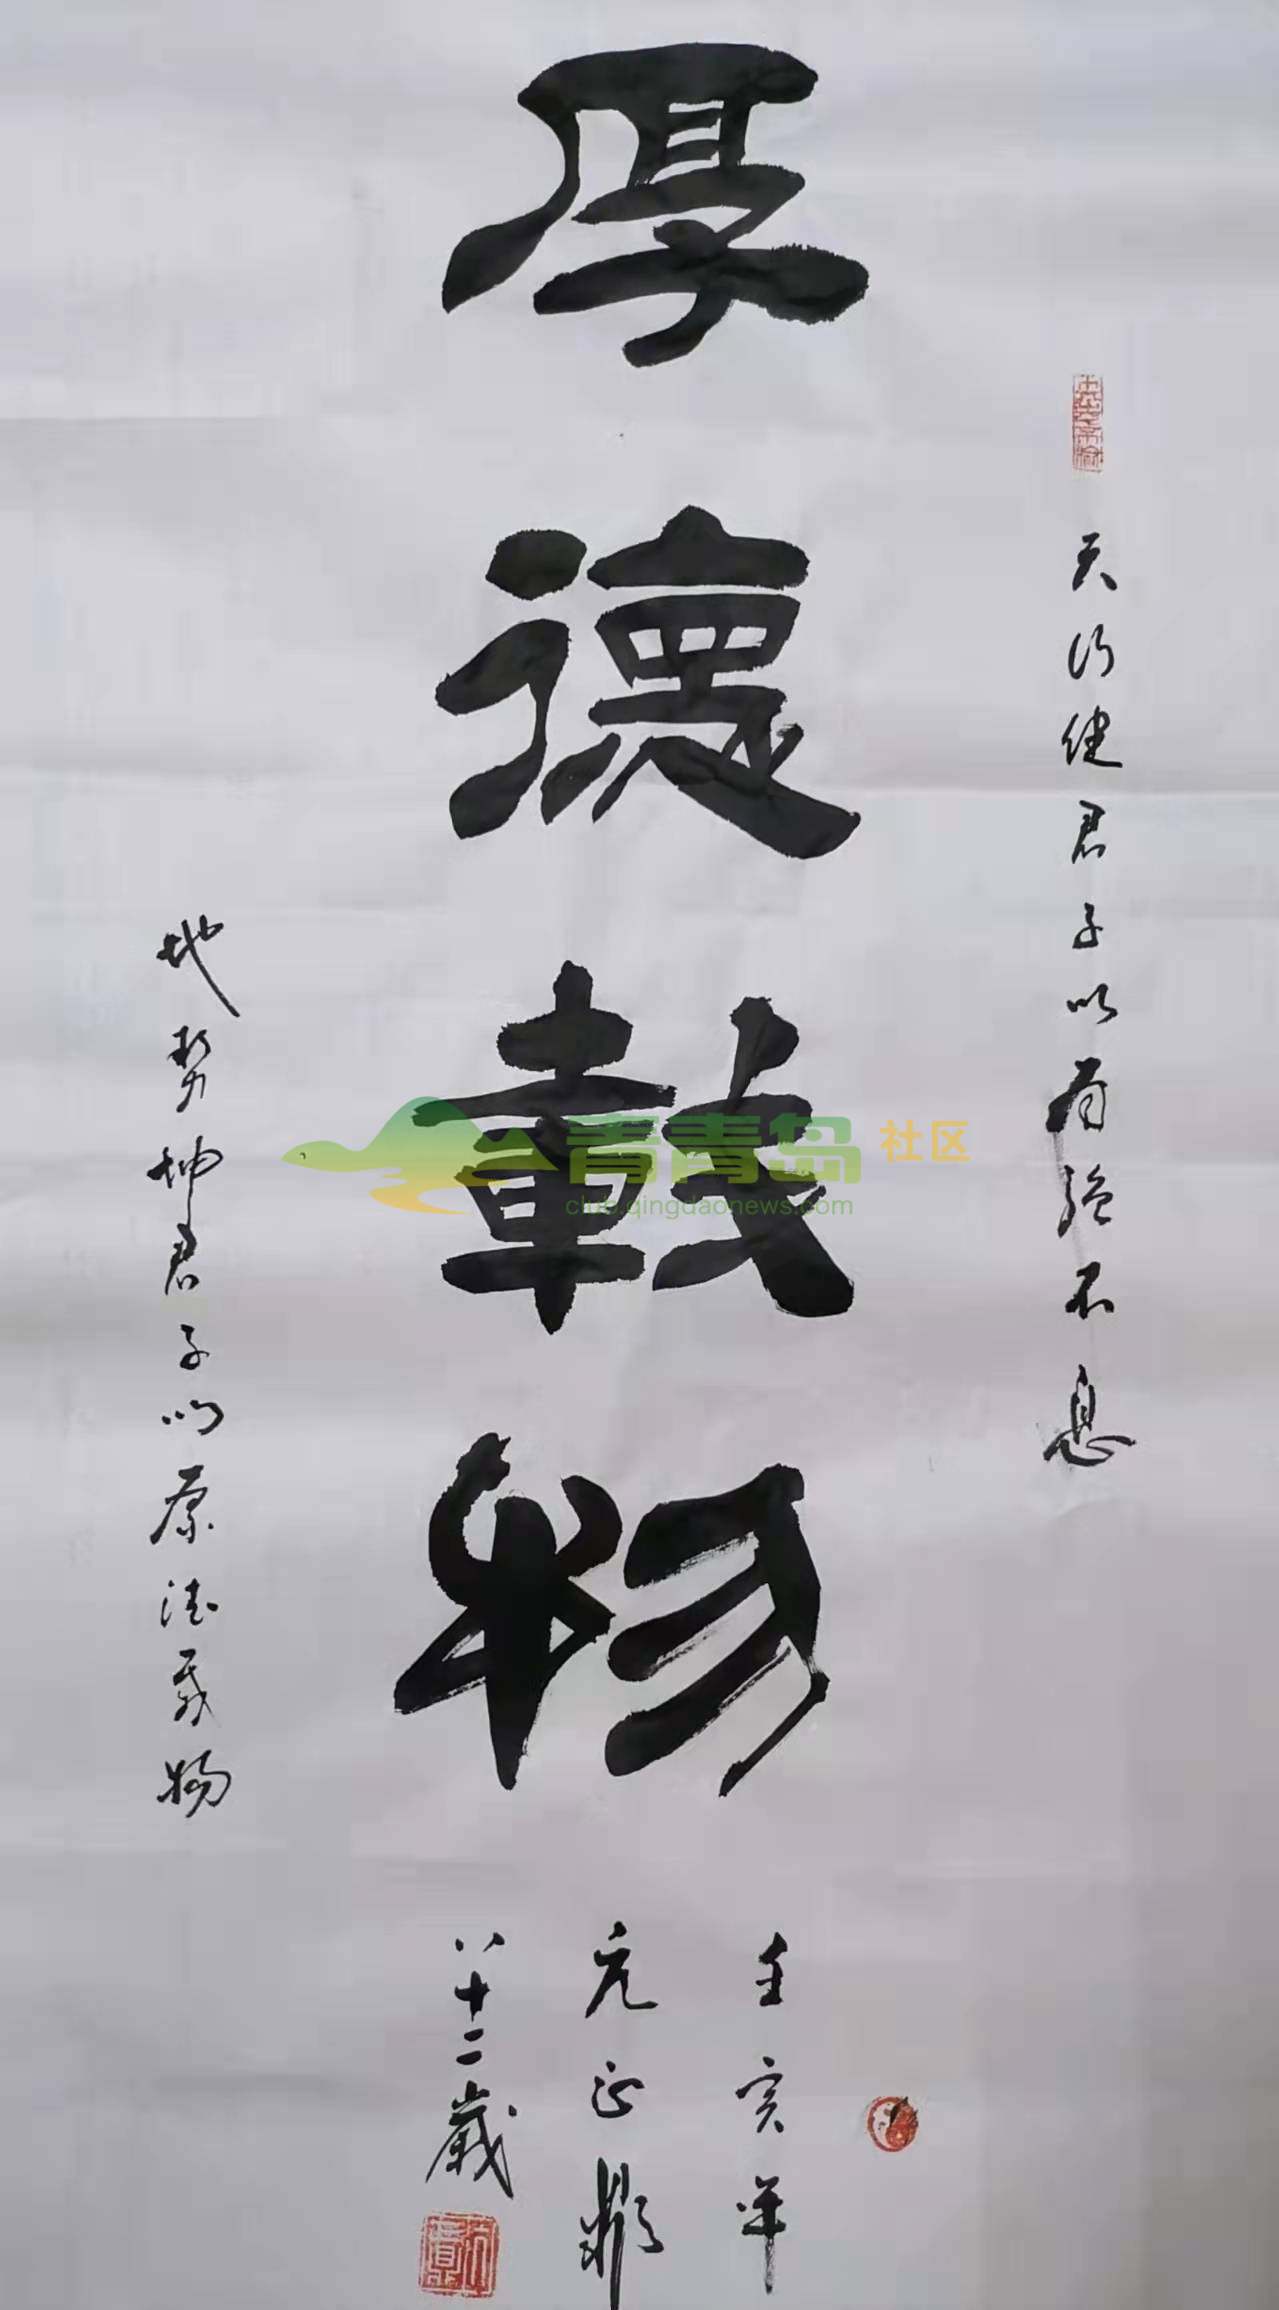 天行健君子以自强不息
厚德载物
地势坤君子以厚德载物
壬寅年
元正
八十二歲
青青岛社区
club.qingdaonews.com